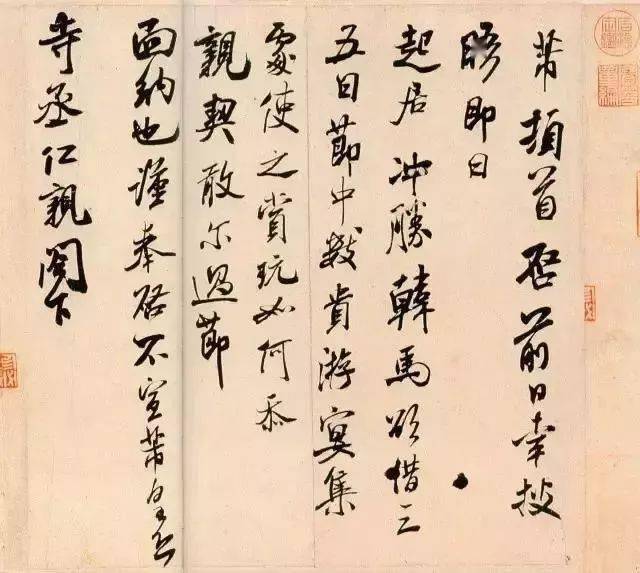 芾頓首启前日幸披
晤即日
起居冲勝韓馬欲借三
五日節中數貴游宴集
處使之賞玩如何忝
親契敢爾過節
面納也謹奉啓不宣芾皇恐
寺丞仁親閣下